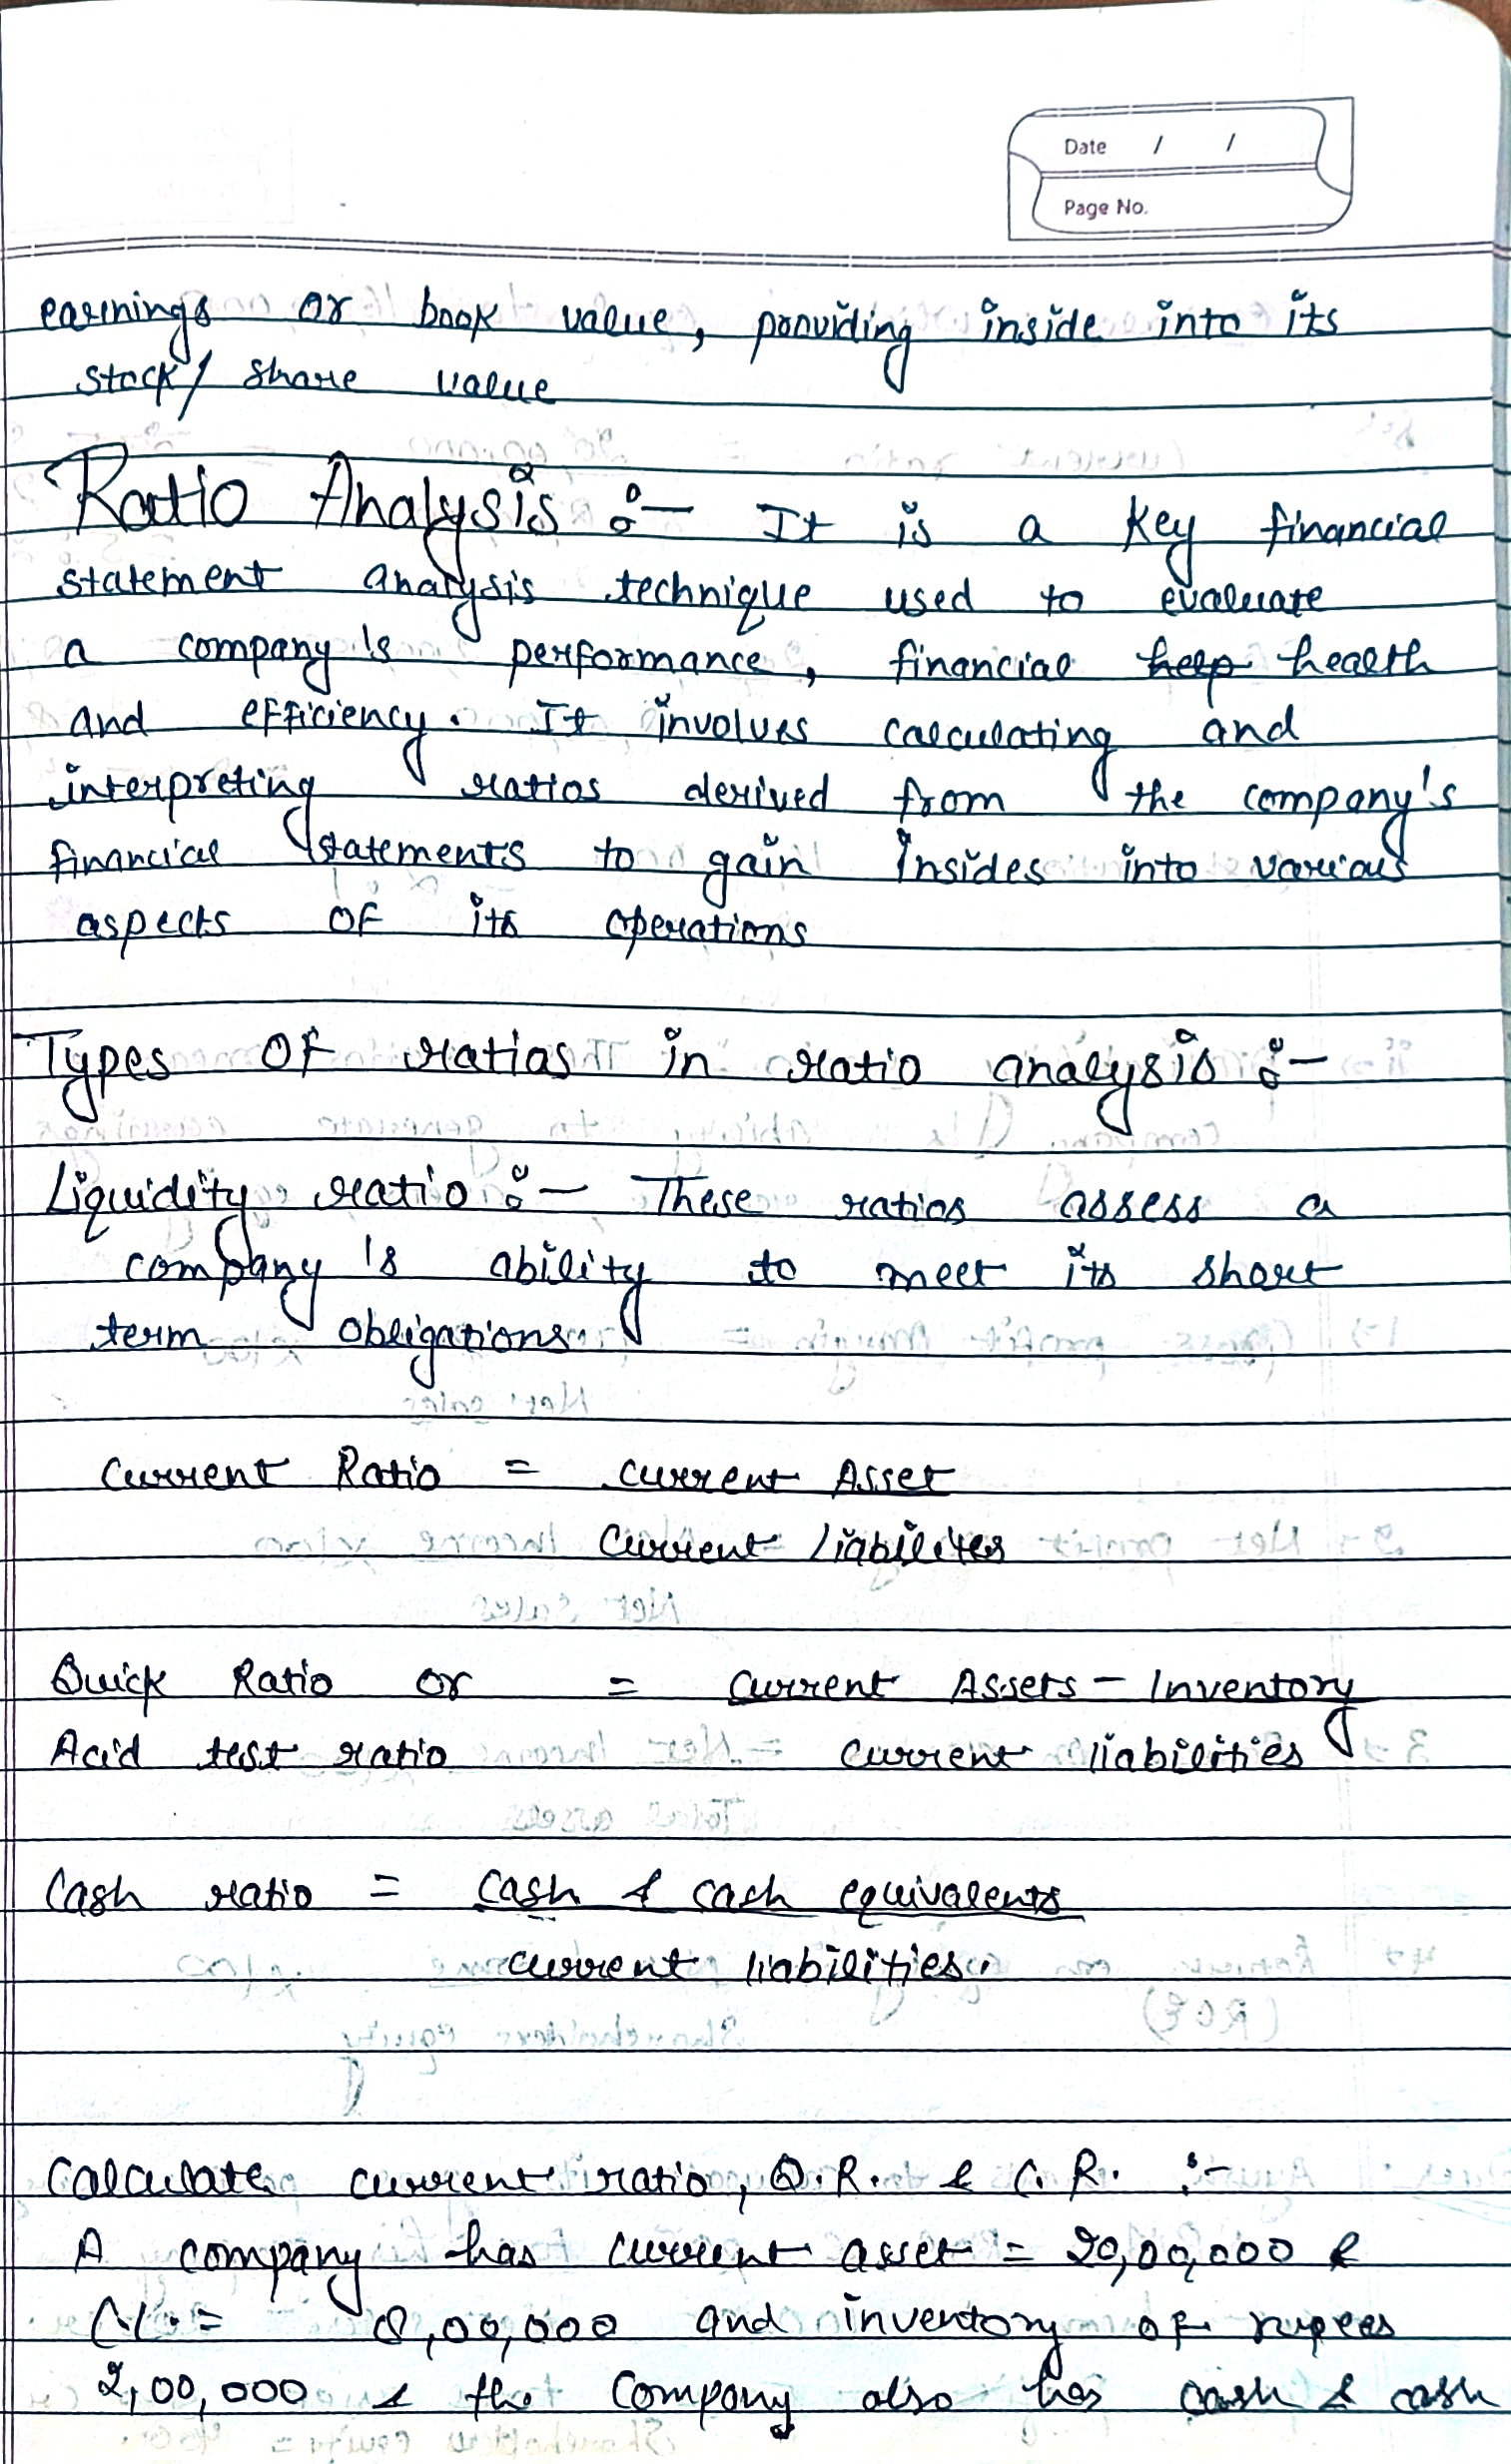 Date / /
Page No.
earnings or book value, providing inside into its
stock/ share value
Ratio Analysis :- It is a key financial
statement analysis technique used to evaluate
a company's performance, financial help health
and efficiency. It involves calculating and
interpreting ratios derived from the company's
financial statements to gain insides into various
aspects of its operations
Types of ratios in ratio analysis :-
Liquidity ratio :- These ratios assess a
company's ability to meet its short
term obligations.
Current Ratio = Current Asset
Current liabilites
Quick Ratio or = Current Assets - Inventory
Acid test ratio Current liabilities
Cash ratio = Cash & cash equivalents
current liabilities.
Calculate current ratio, Q.R. & C.R. :-
A company has current asset = 20,00,000 &
C.L. = 8,00,000 and inventory of rupees
2,00,000 & the company also has cash & cash